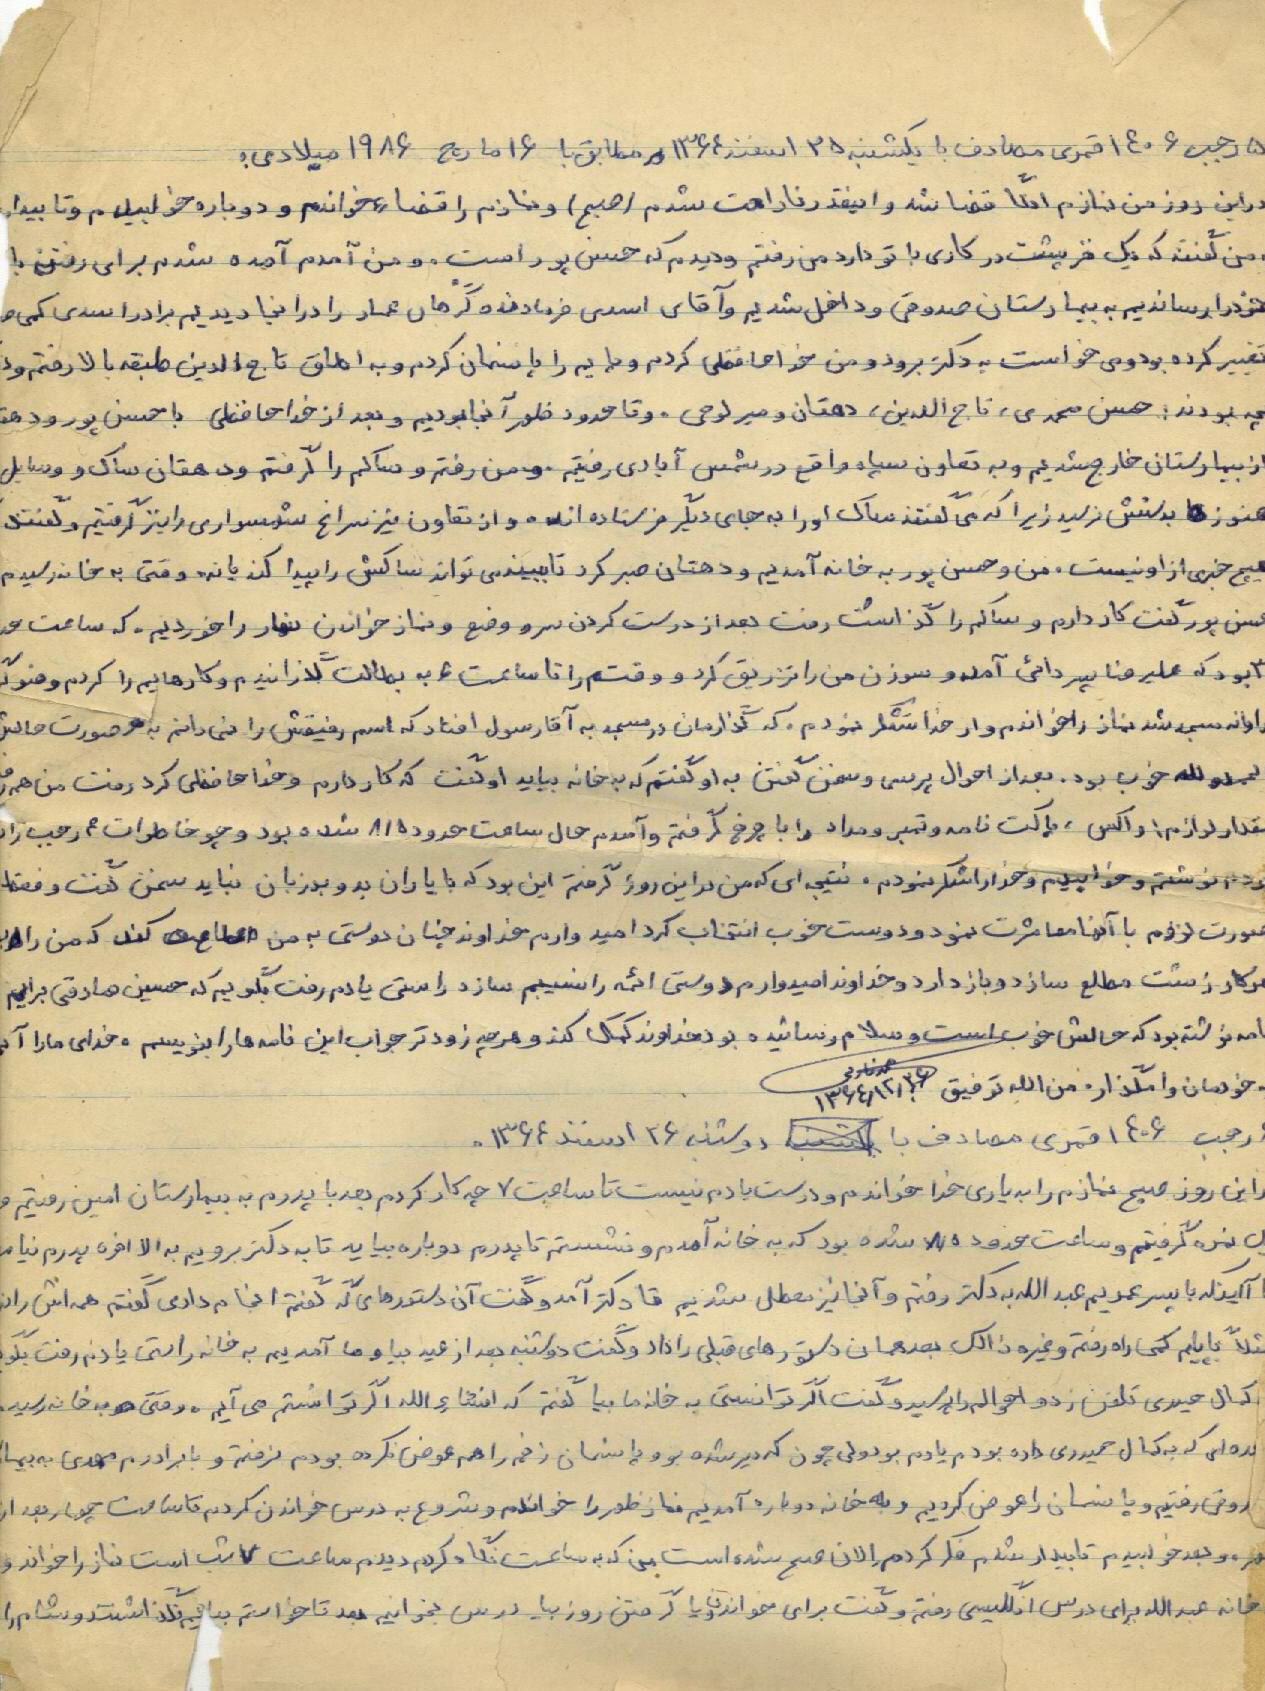 ۵ رجب ۱۴۰۶ قمری مصادف با یکشنبه ۲۵ اسفند ۱۳۶۴ مطابق با ۱۶ مارچ ۱۹۸۶ میلادی:
در این روز من نمازم اولاً قضا شد و اینقدر ناراحت شدم (صبح) و نمازم را قضاء خواندم و دوباره خوابیدم و تا بیدار
من گفتند که یک نفر پشت در کاری با تو دارد من رفتم و دیدم که حسن پور است. و من آمدم آمده شدم برای رفتن با
خود را رساندیم به بیمارستان صدوقی و داخل شدیم و آقای اسدی فرمانده گرهان عمار را در اینجا دیدیم برادر اسدی کمی
تغییر کرده بود و می خواست به دکتر برود و من خداحافظی کردم و پایم را پانسمان کردم و به اطاق تاج الدین طبقه بالا رفتم و
بچه بودند: حسن محمدی، تاج الدین، دهقان و میرلوحی. و تا حدود ظهر آنجا بودیم و بعد از خداحافظی با حسن پور و
از بیمارستان خارج شدیم و به تعاون سپاه واقع در شمس آبادی رفتیم. و من رفتم و ساکم را گرفتم و دهقان ساک و وسایل
هنوز بدستش نرسید زیرا که می گفتند ساک او را به جای دیگر فرستاده اند. و از تعاون نیز سراغ شهسواری را نیز گرفتیم و گفتند
هیچ خبری از او نیست. من و حسن پور به خانه آمدیم و دهقان صبر کرد تا ببیند می تواند ساکش را پیدا کند یا نه. وقتی به خانه رسیدم
حسن پور گفت کار دارم و ساکم را گذاشت رفت بعد از درست کردن سر و وضع و نماز خواندن نهار را خوردیم. که ساعت
۳ بود که علیرضا پسر دائی آمد و سوزن من را تزریق کرد و وقتم را تا ساعت ۶ به بطالت گذراندیم و کارهایم را کردم و
روانه مسجد شد نماز را خواندم و از خدا تشکر نمودم. که گذارمان در مسجد به آقا رسول افتاد که اسم رفیقش را نمی دانم به هر صورت حالش
خوب بود. بعد از احوال پرسی و سخن گفتن به او گفتم که به خانه بیاید او گفت که کار دارم و خداحافظی کرد رفت من هم
مقدار لوازم: واکس، پاکت نامه و تمبر و مداد را با چرخ گرفتم و آمدم حال ساعت حدود ۸/۵ شده بود و چو خاطرات ۴ رجب را
نوشتم و خوابیدم و خدا را شکر نمودم. نتیجه ای که من در این روز گرفتم این بود که با یاران بد و بد زبان نباید سخن گفت و فقط
صورت لزوم با آنها معاشرت نمود و دوست خوب انتخاب کرد امیدوارم خداوند چنان دوستی به من کند که من را
کار زشت مطلع سازد و باز دارد و خداوند امیدوارم دوستی ائمه را نسیبم سازد راستی یادم رفت بگویم که حسین صادقی برایم
نامه نوشته بود که حالش خوب است و سلام رسانیده بود خداوند کمک کند و هرچه زودتر جواب این نامه ها را بنویسم. خدای ما را
خودمان وا مگذار. من الله توفیق ۱۳۶۴/۱۲/۲۶
۶ رجب ۱۴۰۶ قمری مصادف با دوشنبه ۲۶ اسفند ۱۳۶۴.
در این روز صبح نمازم را به یاری خدا خواندم و درست یادم نیست تا ساعت ۷ چه کار کردم بعد با پدرم به بیمارستان امین رفتیم و
نمره گرفتیم و ساعت حدود ۸/۵ شده بود که به خانه آمدم و نشستم تا پدرم دوباره بیاید تا به دکتر برویم به الاخره پدرم
با پسر عمویم عبدالله به دکتر رفتم و آنجا نیز معطل شدیم تا دکتر آمد و گفت آن دستورهای که گفتم انجام دادی گفتم همه اش را
مثلاً پایم کمی راه رفتم و غیره ذالک بعد همان دستورهای قبلی را داد و گفت دوشنبه بعد از عید بیا و ما آمدیم به خانه راستی یادم رفت
کمال حیدری تلفن زد و احوالم را پرسید و گفت اگر توانستی به خانه ما بیا گفتم که انشاء الله اگر توانستم می آیم. وقتی به خانه
که به کمال حمیدری داده بودم یادم بود ولی چون که دیر شده بود و پانسمان زخم را هم عوض نکرده بودم نرفتم و با برادرم مهدی به
رفتیم و پانسمان را عوض کردیم و به خانه دوباره آمدیم نماز ظهر را خواندم و شروع به درس خواندن کردم تا ساعت چهار بعد از
و بعد خوابیدم تا بیدار شدم فکر کردم الان صبح شده است من که به ساعت نگاه کردم دیدم ساعت ۷ شب است نماز را خواند
خانه عبدالله برای درس انگلیسی رفتم و گفت برای خواندن روز بیا درس بخوانیم بعد تا خواستم بیایم نگذاشت و شام را